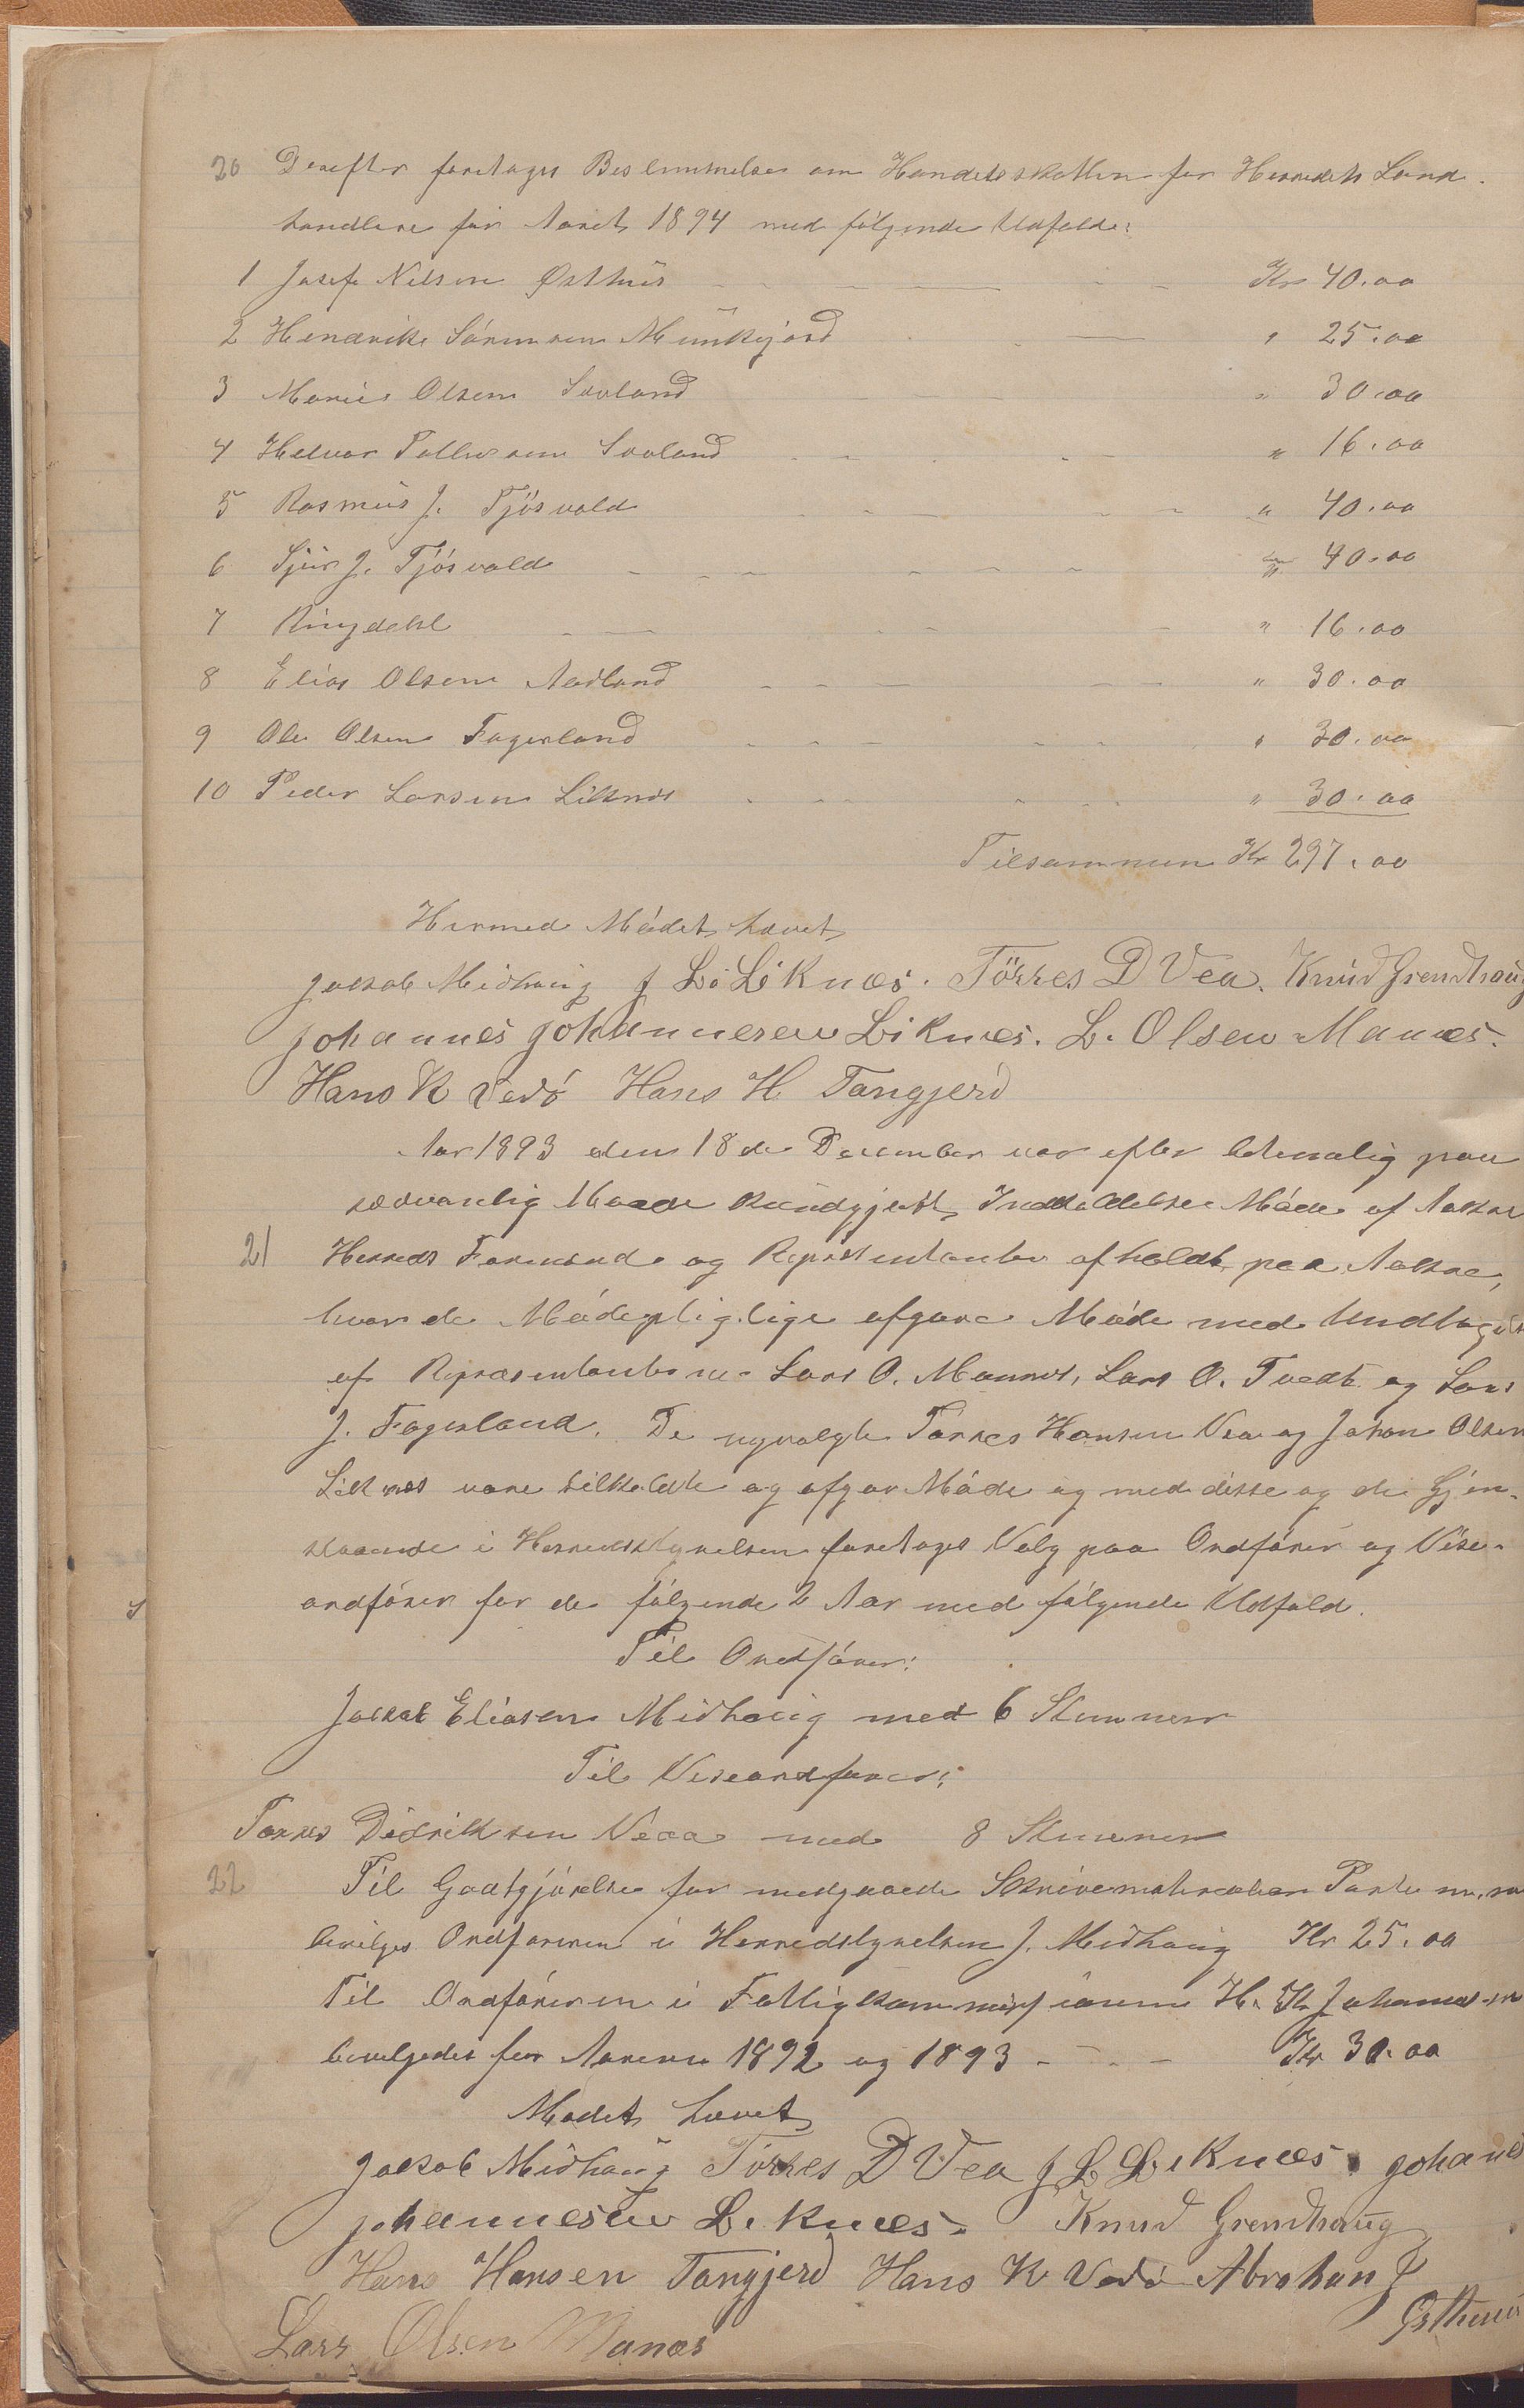 20 Derefter foretages Beslemmelse om Handelsskatten for Herredets Land-
handlere for Aaret 1894 med følgende Udfald:
1 Josef Nilsen Østhus - - - Kr 40.00
2 Hendrik Sørensen Munkejord - - " 25.00
3 Marius Olsen Sævland - - " 30.00
4 Helvar Pallesen Sævland - - " 16.00
5 Rasmus J. Tjösvold - - " 40.00
6 Sjur J. Tjösvold - - " 40.00
7 Ringdahl - - " 16.00
8 Elias Olsen Aadland - - " 30.00
9 Ole Olsen Fagerland - - " 30.00
10 Peder Larsen Liknes - - " 30.00
Tilsammen Kr 297.00
Hermed Mødet hævet
Jakob Midhaug J L. Liknæs. Törres D Vea. Knud Grendhaug
Johannes Johannesen Liknæs. L. Olsen Manæs.
Hans K Vedø Hans H Tangjerd
Aar 1893 den 18de December var efter lovmalig paa
sædvanlig Maade kundgjort Indkaldelse Møde af Aakre
21 Herreds Formænd og Repræsentanter afholdt paa Aakre,
hvor de Mødepligtige afgave Møde med Undtagelse
af Repræsentanterne Lars O. Mannes, Lars O. Tvedt og Lars
J. Fagerland. De nyvalgte Tørres Hansen Vea og Johan Olsen
Liknes vare tilkaldte og afgav Møde og med disse og de Gjen-
staaende i Herredsstyrelsen foretages Valg paa Ordfører og Vise-
ordfører for de følgende 2 Aar med følgende Udfald.
Til Ordfører:
Jakob Eliasen Midhaug med 6 Stemmer
Til Viseordfører:
Tørres Didriksen Veaa med 8 Stemmer
22 Til Godtgjørelse for medgaaede Skrivematerialier Porto m.m
bevilges Ordføreren i Herredsstyrelsen J. Midhaug Kr 25.00
Til Ordføreren i Fattigkommissionen H. K. Johannesen
bevilgedes for Aarene 1892 og 1893 - - - Kr 30.00
Mødet hævet
Jakob Midhaug Törres D Vea J L Liknæs. Johanes
Johannesen Liknæs. Knud Grendhaug
Hans Hansen Tangjerd Hans K Vedø Abraham J
Østhus
Lars Olsen Manæs